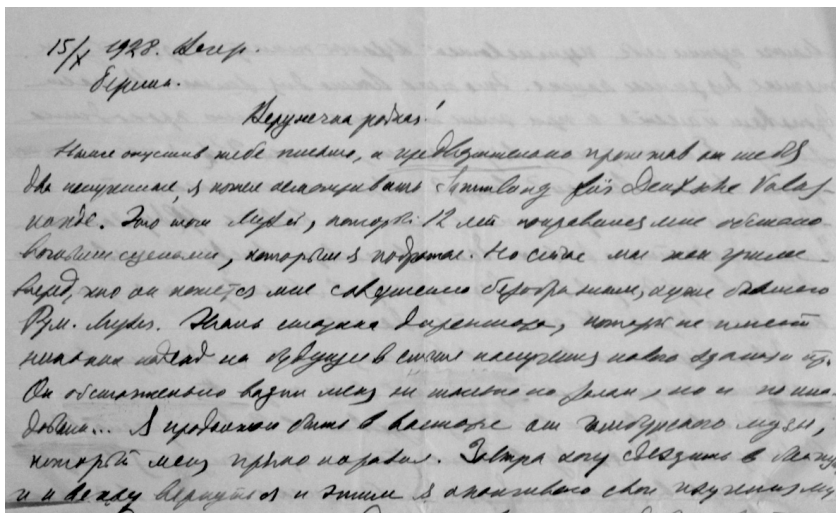 15/X 1928. Вечер.
Берлин.
Верунечка родная!
Ныне опустив тебе письмо, и предварительно проехав от тебя
два, я поехал осматривать Sammlung für Deutsche Volks
kunde. Это тот Музей, который 12 лет понравился мне обстано
вочными сценами, которым я подражал. Но сейчас мы так ушли
вперед, что он кажется мне совершенно безобразным, хуже бывшего
Рум. Музея. Жаль старика директора, который не имеет
никаких надежд на будущее в смысле получения нового здания и пр.
Он обстоятельно водил меня не только по залам, но и по кла
довым... Я продолжаю быть в восторге от гамбургского музея,
который меня прямо поразил. Завтра хочу съездить в
и к вечеру вернуться и этим я оканчиваю свои изучения му